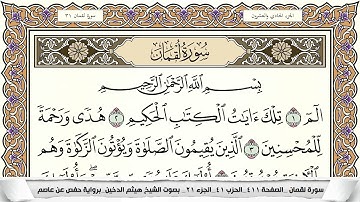 الجزء الحادي والعشرون
سورة لقمان ٣١
سُورَةُ لُقْمَان
بِسْمِ اللَّهِ الرَّحْمَٰنِ الرَّحِيمِ
الٓمٓ ١ تِلْكَ ءَايَٰتُ الْكِتَٰبِ الْحَكِيمِ ٢ هُدًى وَرَحْمَةً
لِّلْمُحْسِنِينَ ٣ الَّذِينَ يُقِيمُونَ الصَّلَوٰةَ وَيُؤْتُونَ الزَّكَوٰةَ وَهُم
سورة لقمان _ الصفحة ٤١١ _ الحزب ٤١ _ الجزء ٢١ _ بصوت الشيخ هيثم الدخين _ برواية حفص عن عاصم